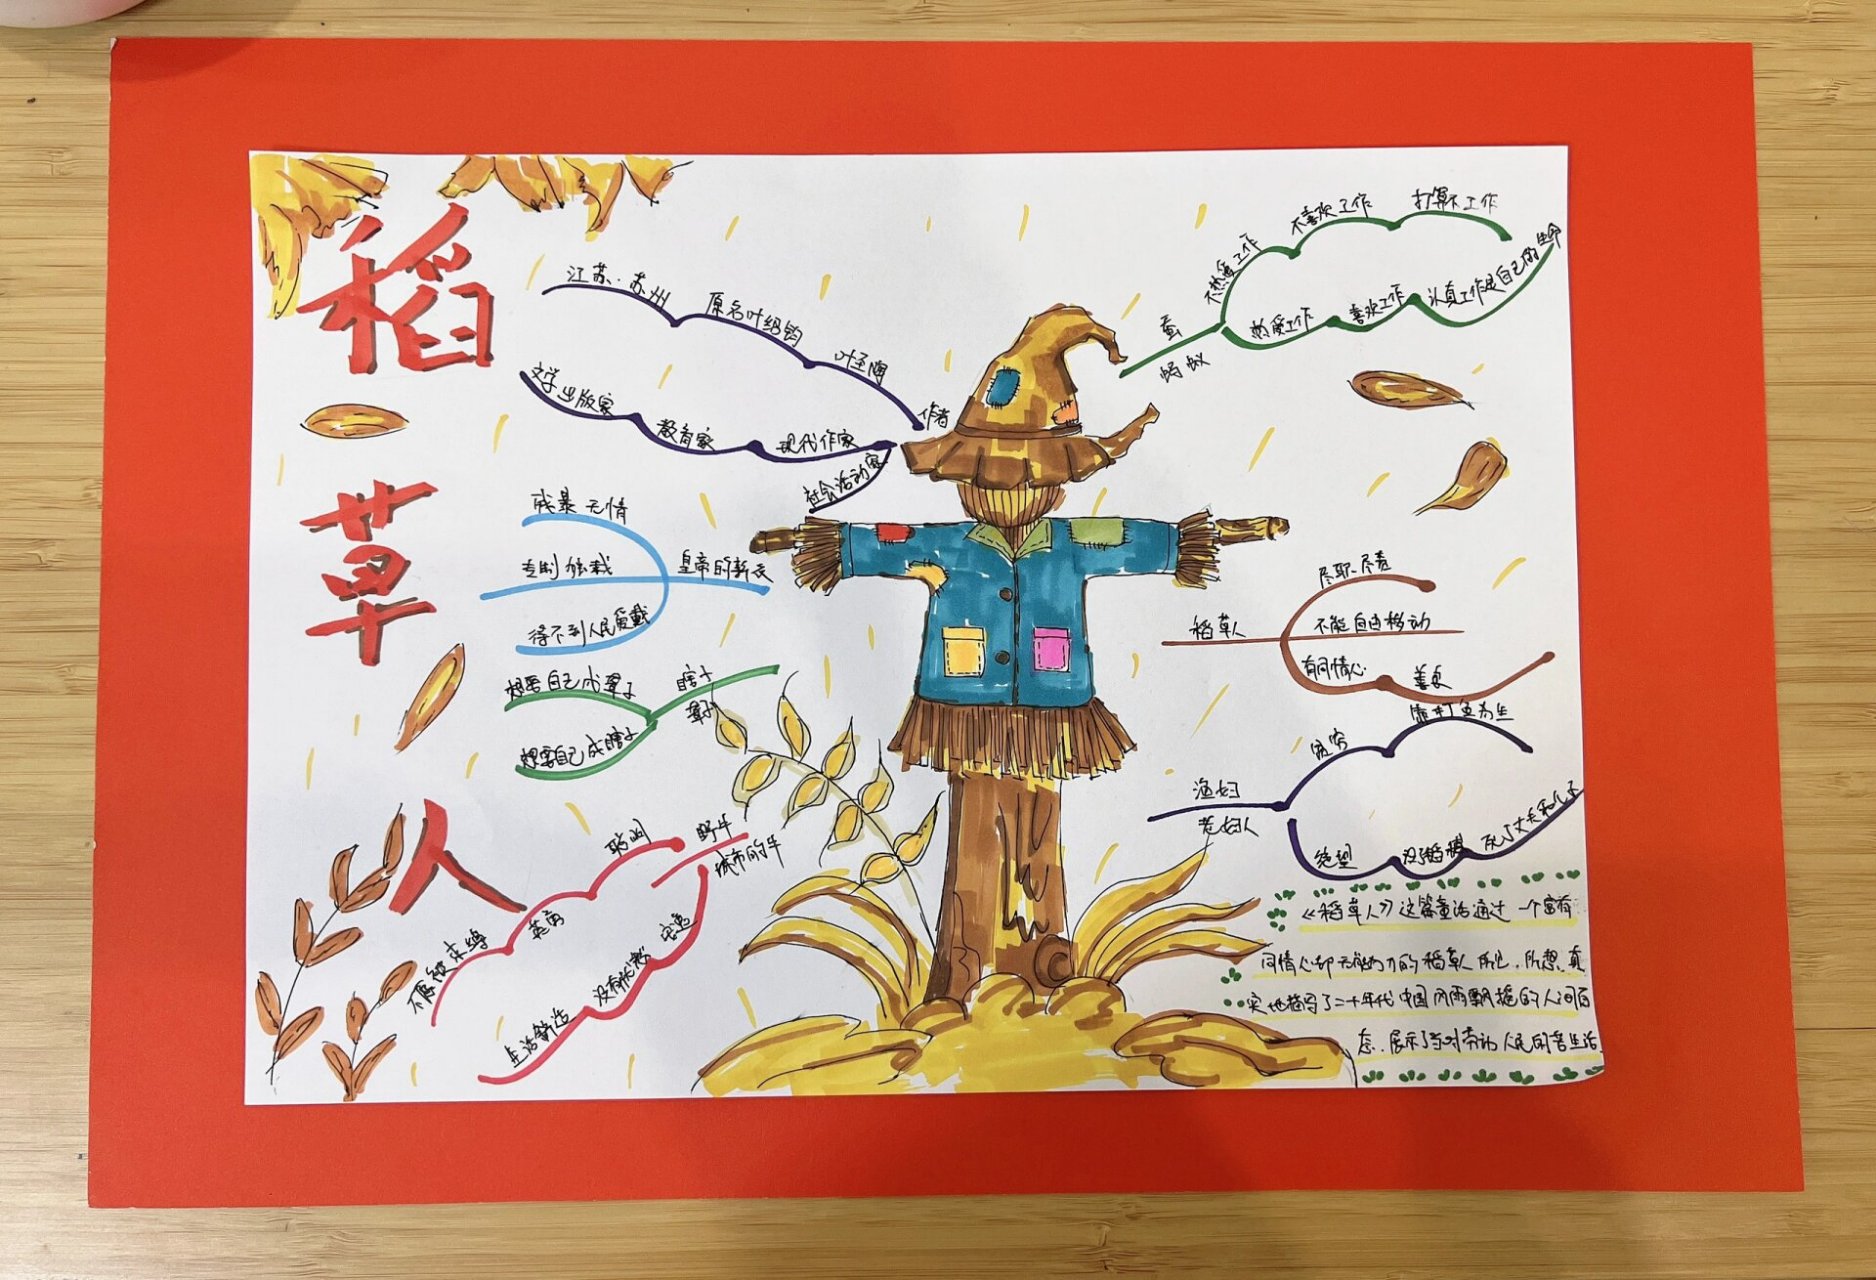 稻草人
作者
叶至陶
原名叶绍钧
江苏·苏州
现代作家
教育家
文学出版家
社会活动家
皇帝的新衣
残暴 无情
专制 独裁
得不到人民爱戴
瞎子
聋子
想要自己成聋子
想要自己成瞎子
野牛
城市的牛
聪明
英勇
不愿被束缚
安逸
没有忧愁
生活舒适
蚕
蚂蚁
不热爱工作
不喜欢工作
打算不工作
热爱工作
喜欢工作
认真工作是自己的生命
稻草人
尽职尽责
不能自由移动
有同情心
善良
渔妇
老妇人
贫穷
靠打鱼为生
绝望
死了丈夫和儿子
《稻草人》这篇童话通过一个富有
同情心却无能为力的稻草人所见、所想、真
实地描写了二十年代中国风雨飘摇的人间百
态、展示了当时劳动人民的苦生活